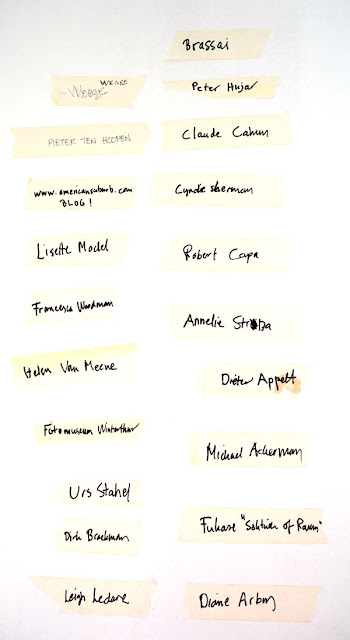 WEGEE
-Weege
PIETER TEN HOOPEN
www.americansuburb.com
BLOG!
Lisette Model
Francesca Woodman
Helen Van Meene
Fotomuseum Winterthur
Urs Stahel
Dirk Braekman
Leigh Ledare
Brassai
Peter Hujar
Claude Cahun
Cyndie sherman
Robert Capa
Annelie
Dieter Appelt
Michael Ackerman
Fukase "Solitude of Raven"
Diane Arbus